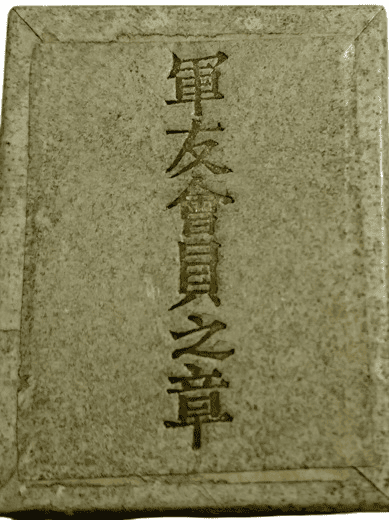 軍友會員之章